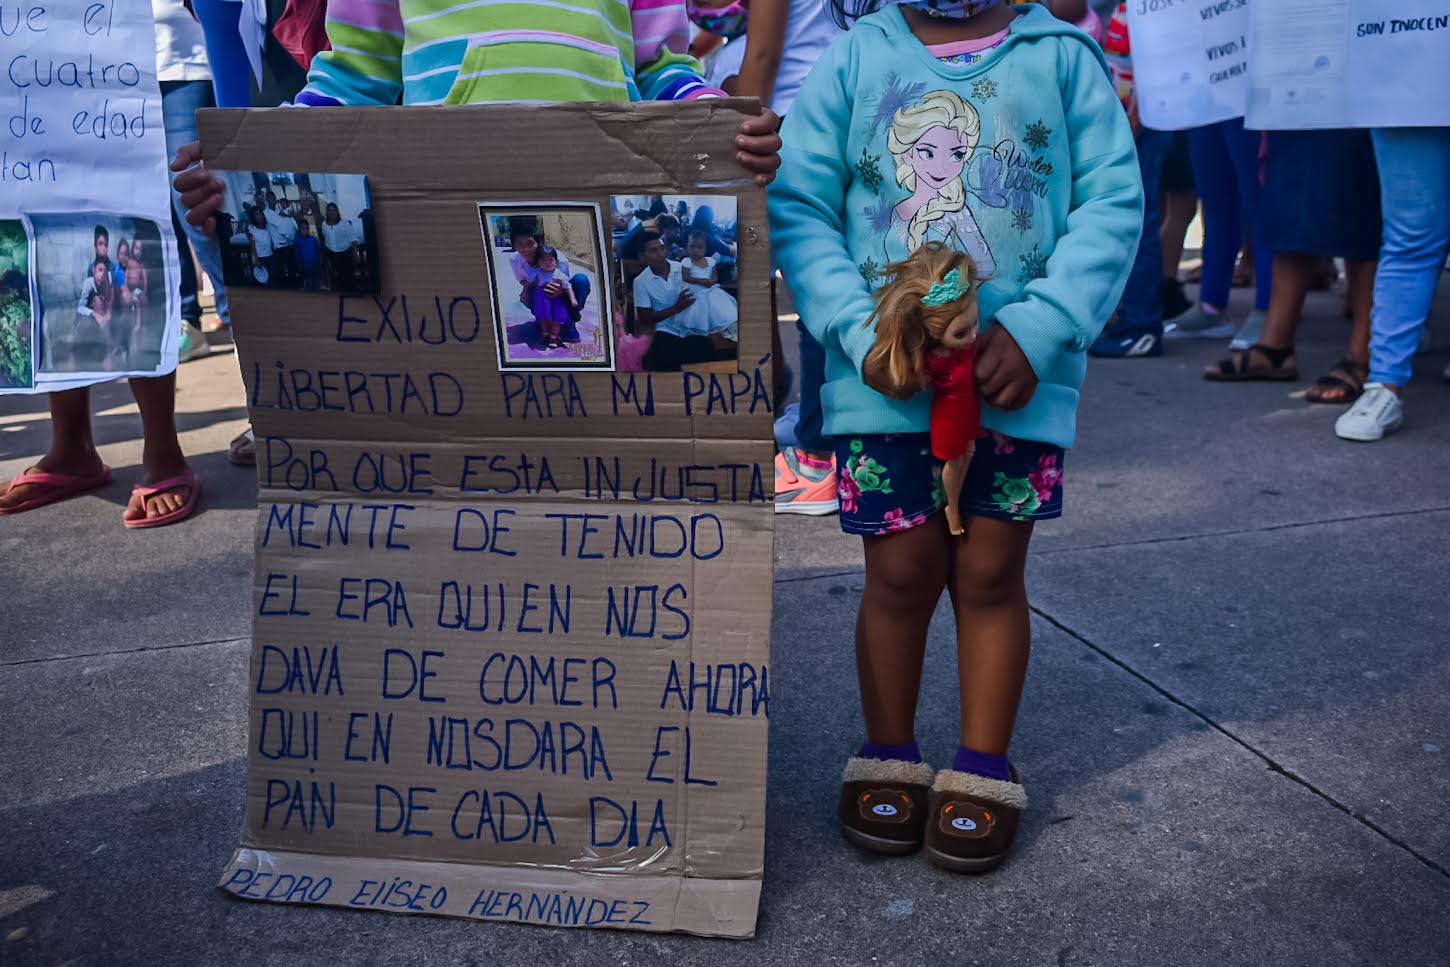 ue el
Cuatro
de edad
tan
EXIJO
LiBERTAD PARA MI PAPÁ
POR QUE ESTA INJUSTA
MENTE DE TENIDO
EL ERA QUIEN NOS
DAVA DE COMER AHORA
QUI EN NOSDARA EL
PAN DE CADA DIA
PEDRO EliSEO HERNÁNDEZ
Winter
SON INOCEN